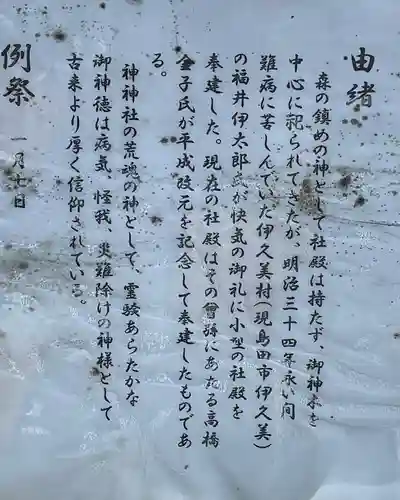 由緒
森の鎮めの神として社殿は持たず、御神木を
中心に祀られてきたが、明治三十四年永い間
難病に苦しんでいた伊久美村(現島田市伊久美)
の福井伊太郎氏が快気の御礼に小型の社殿を
奉建した。現在の社殿はその曽孫にあたる高橋
金子氏が平成改元を記念して奉建したものであ
る。
神神社の荒魂の神として、霊験あらたかな
御神徳は病気、怪我、災難除けの神様として
古来より厚く信仰されている。
例祭 一月七日